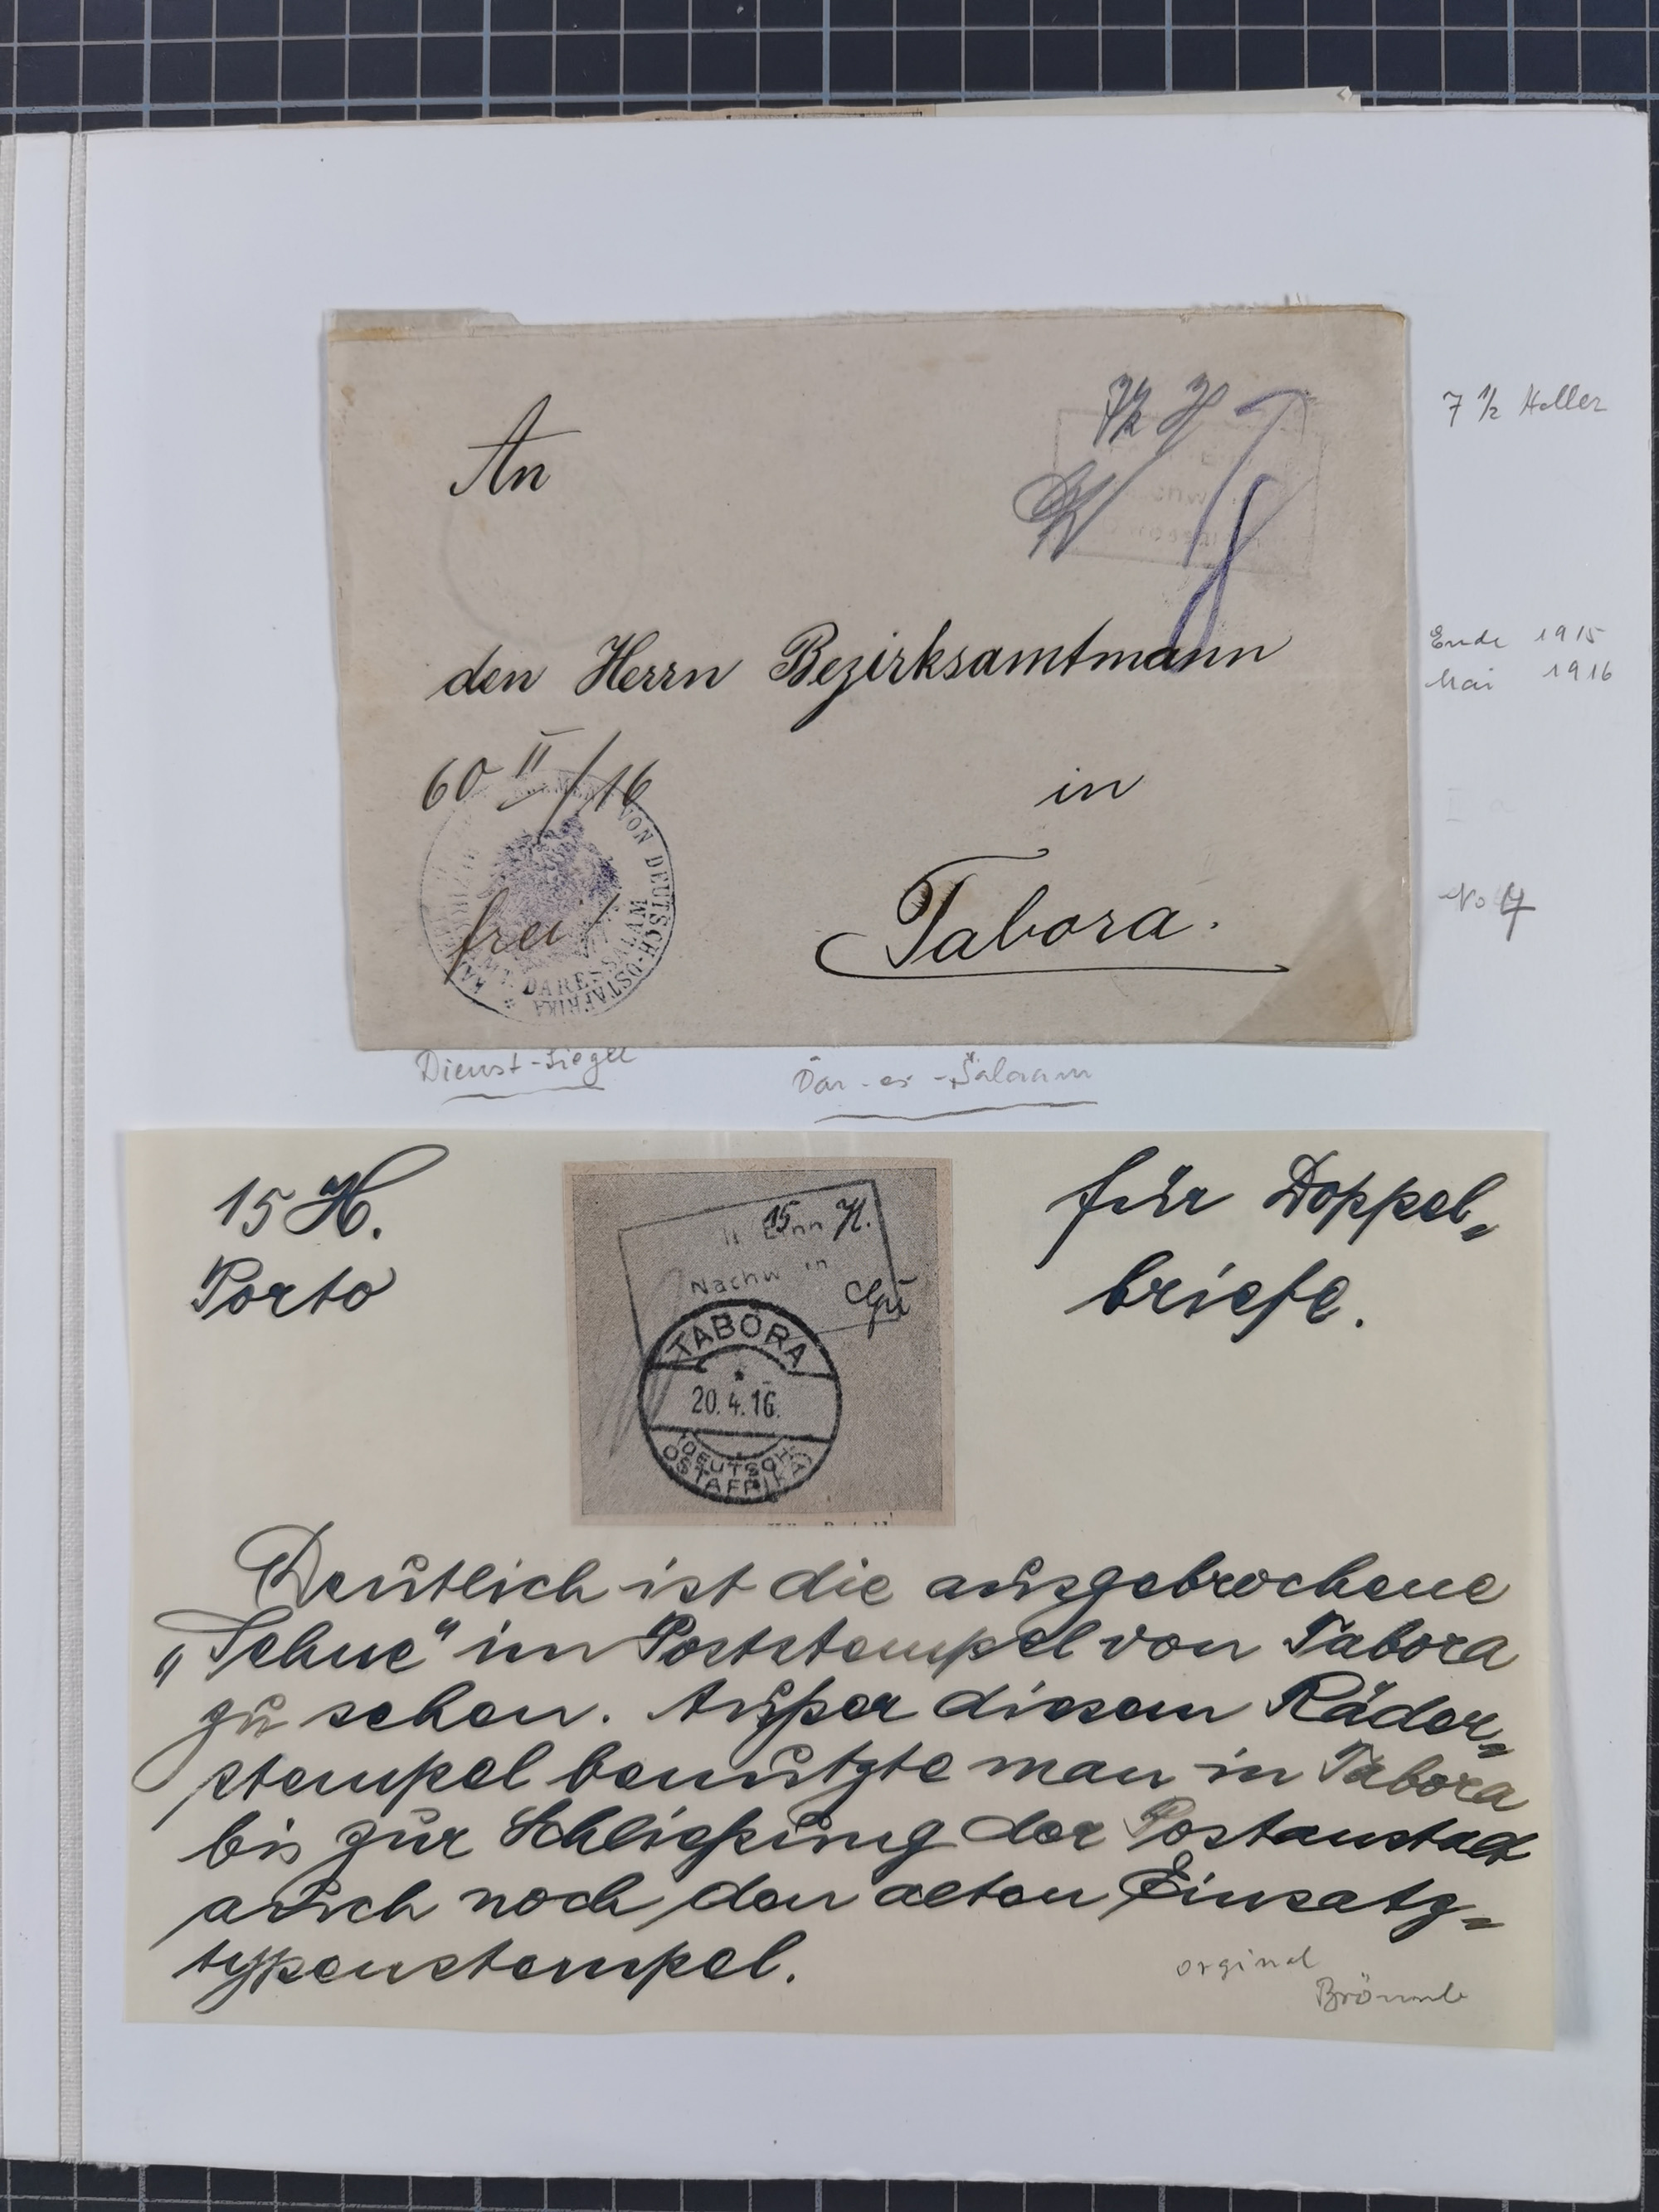 7½ H
7 ½ Heller
An
Ende 1915
Mai 1916
den Herrn Bezirksamtmann
60 II/16
in
VON DEUTSCH-OSTAFRIKA
DARESSALAM
frei!
Tabora.
No 4
Dienst-Siegel
Dar-es-Salaam
15 H.
Porto
für Doppel-
briefe.
15 H.
Nachw in
TABORA
20.4.16.
(DEUTSCH-
OSTAFRIKA)
Deutlich ist die ausgebrochene
„Sehne" im Poststempel von Tabora
zu sehen. Außer diesem Räder-
stempel benutzte man in Tabora
bis zur Schließung der Postanstalt
auch noch den alten Einsatz-
typenstempel.
orginal